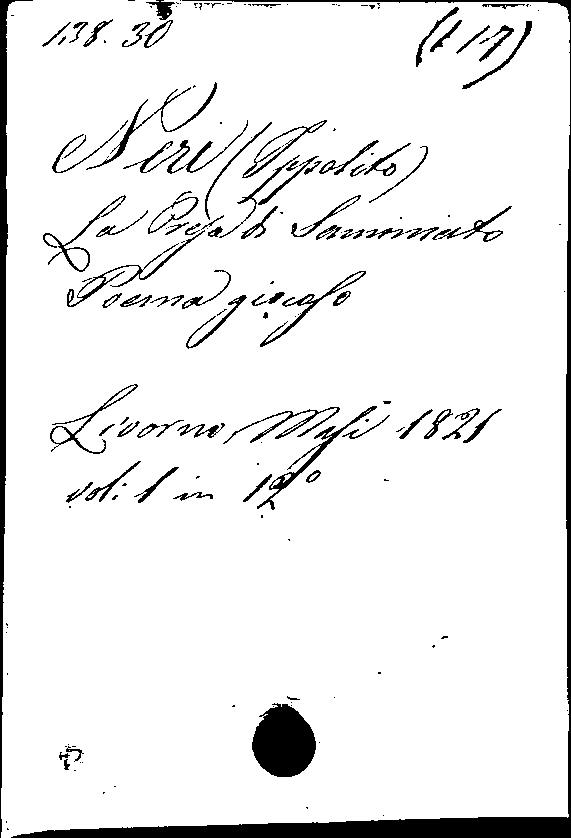 138.30 (I 17)
Neri (Ippolito)
La Presa di Samminiato
Poema giocoso
Livorno, Masi 1821
vol: 1 in 12º